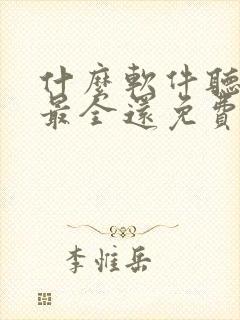 什麼軟件聽
最全還免費
李惟岳